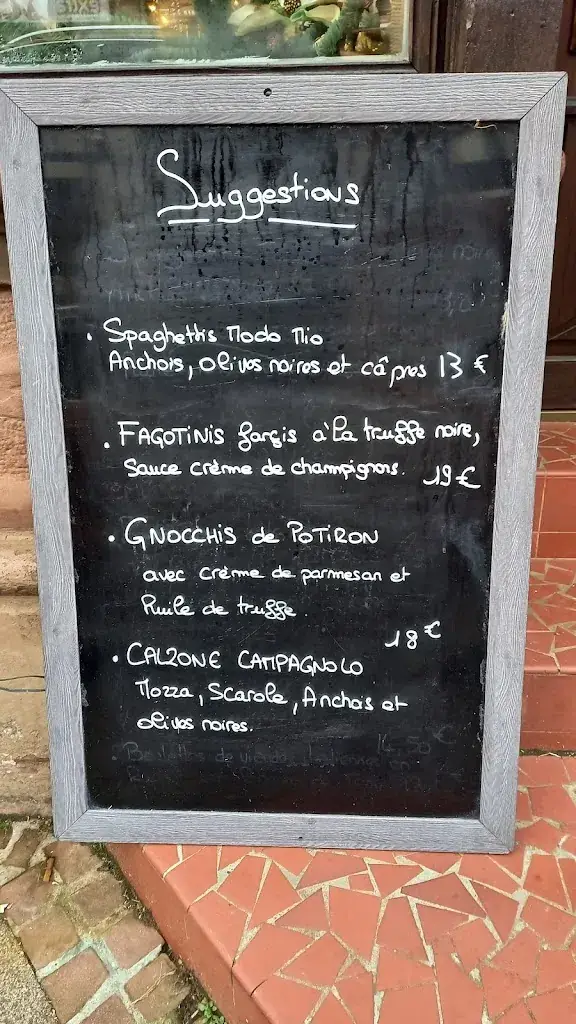 Suggestions
• Spaghettis Modo Mio
Anchois, olives noires et câpres 13 €
• FAGOTINIS farcis à la truffe noire,
Sauce crème de champignons. 19 €
• GNOCCHIS de POTIRON
avec crème de parmesan et
Huile de truffe.
18 €
• CALZONE CAMPAGNOLO
Mozza, Scarole, Anchois et
olives noires.
14,50 €
• Boulettes de